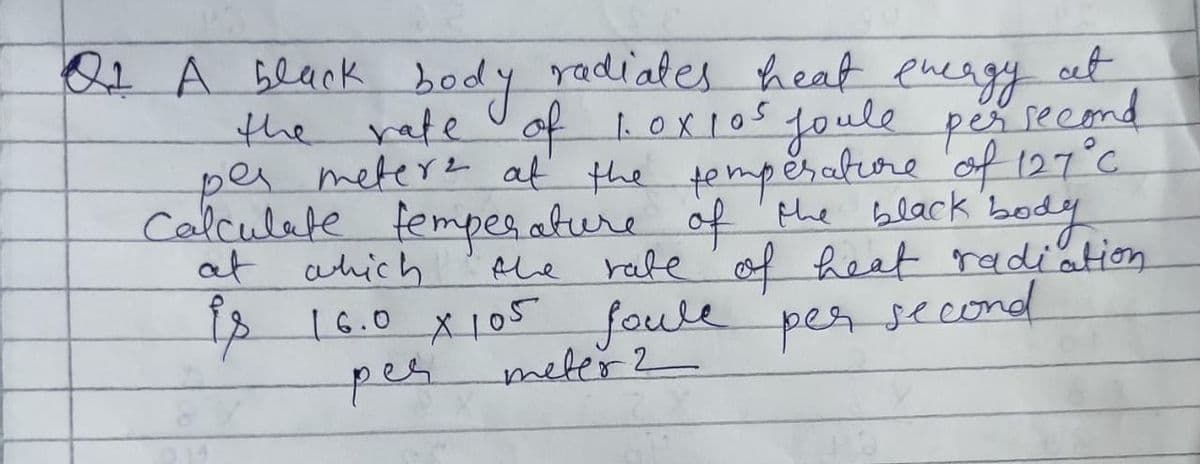 Q1 A black body radiates heat energy at
the rate of 1.0 x 10⁵ joule per second
per meter2 at the temperature of 127°C
Calculate temperature of the black body
at which the rate of heat radiation
is 16.0 x 10⁵ joule per second
per meter2